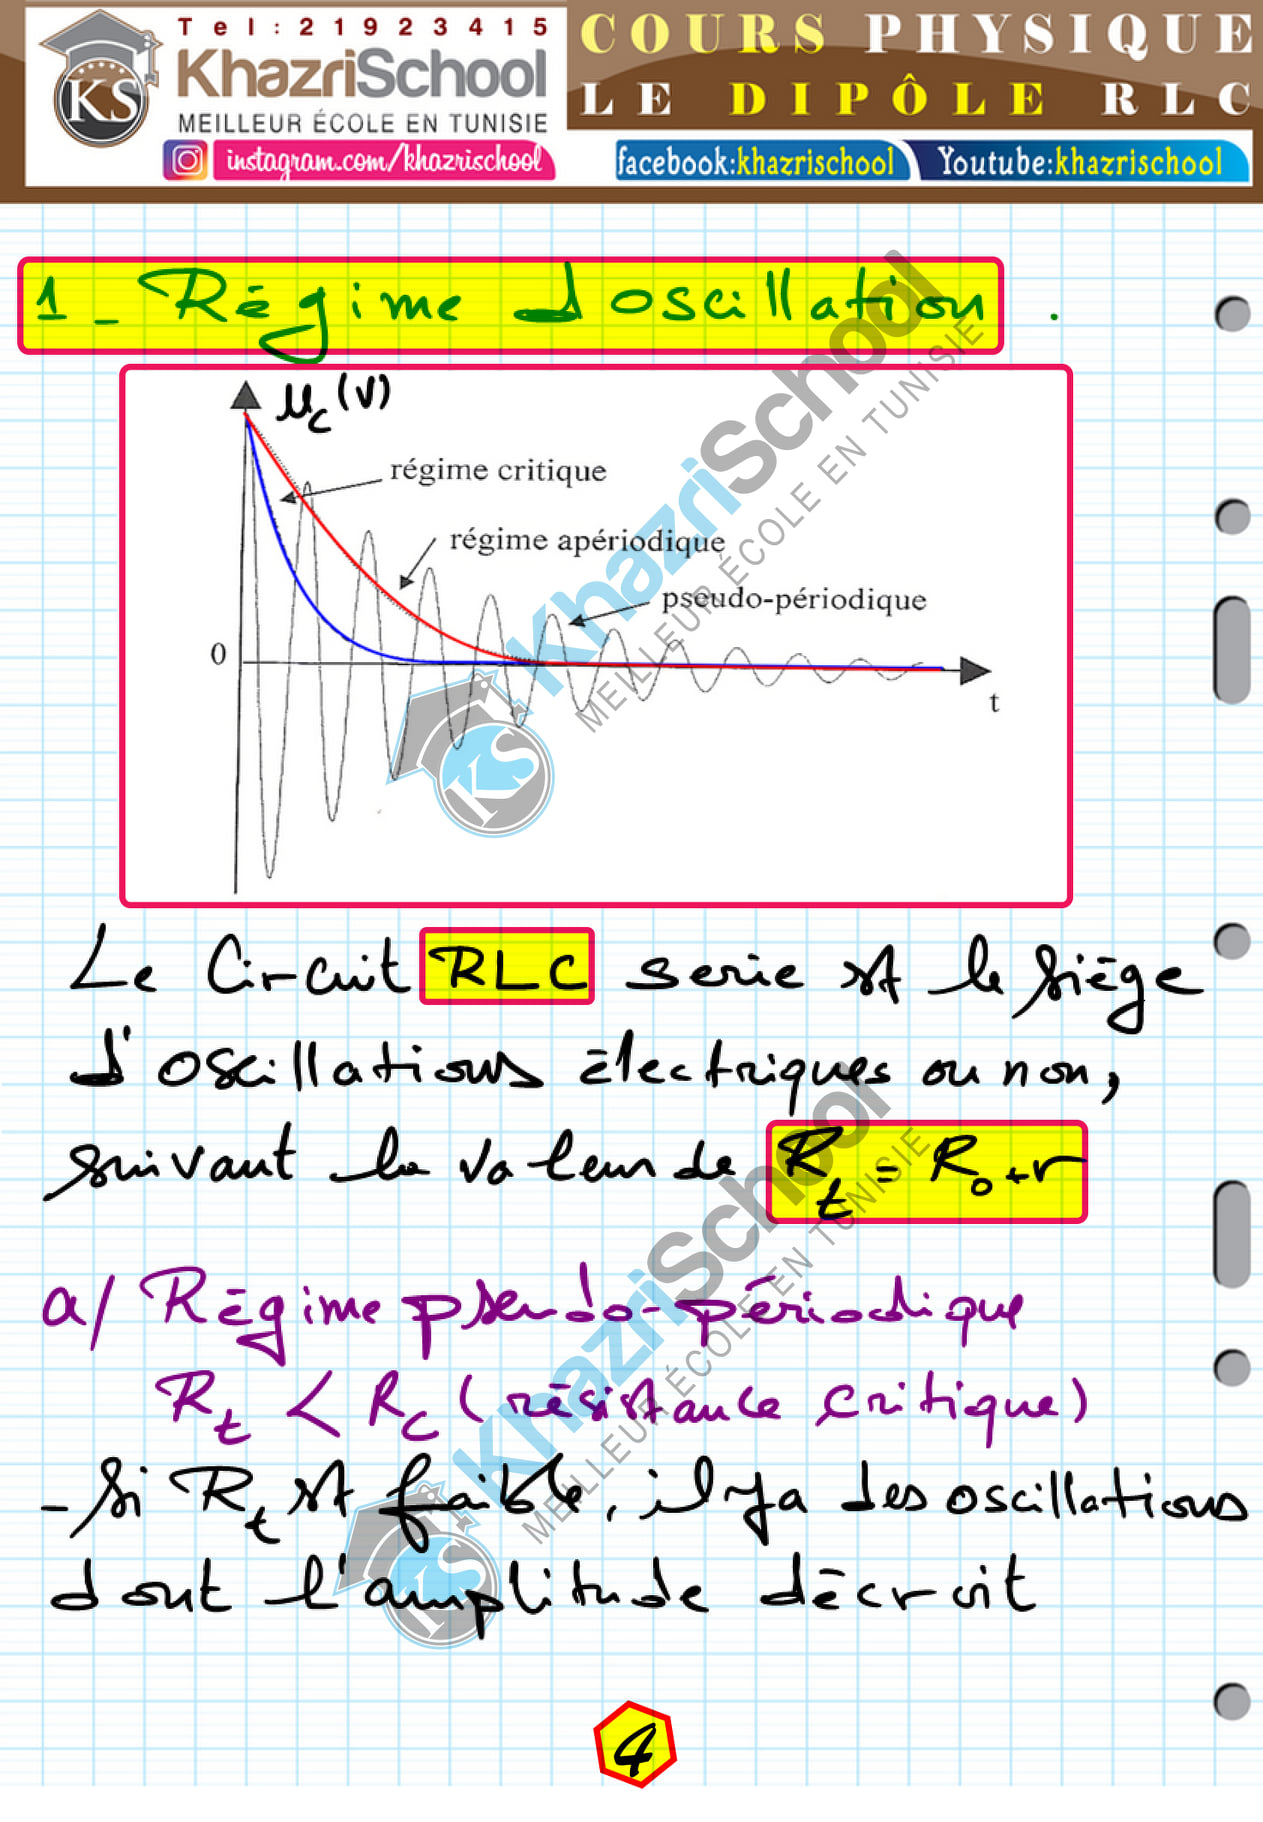 Tel:21923415
KhazriSchool
MEILLEUR ÉCOLE EN TUNISIE
instagram.com/khazrischool
COURS PHYSIQUE
LE DIPÔLE RLC
facebook:khazrischool
Youtube:khazrischool
KS
1 - Régime d'oscillation.
u_c (V)
régime critique
régime apériodique
pseudo-périodique
0
t
KhazriSchool
MEILLEUR ÉCOLE EN TUNISIE
KS
Le Circuit RLC serie est le siège
d'oscillations électriques ou non,
suivant la valeur de R_t = R_0 + r
a/ Régime pseudo-périodique
R_t < R_c (résistance critique)
- Si R_t est faible, il y a des oscillations
dont l'amplitude décroit
KhazriSchool
MEILLEUR ÉCOLE EN TUNISIE
KS
4